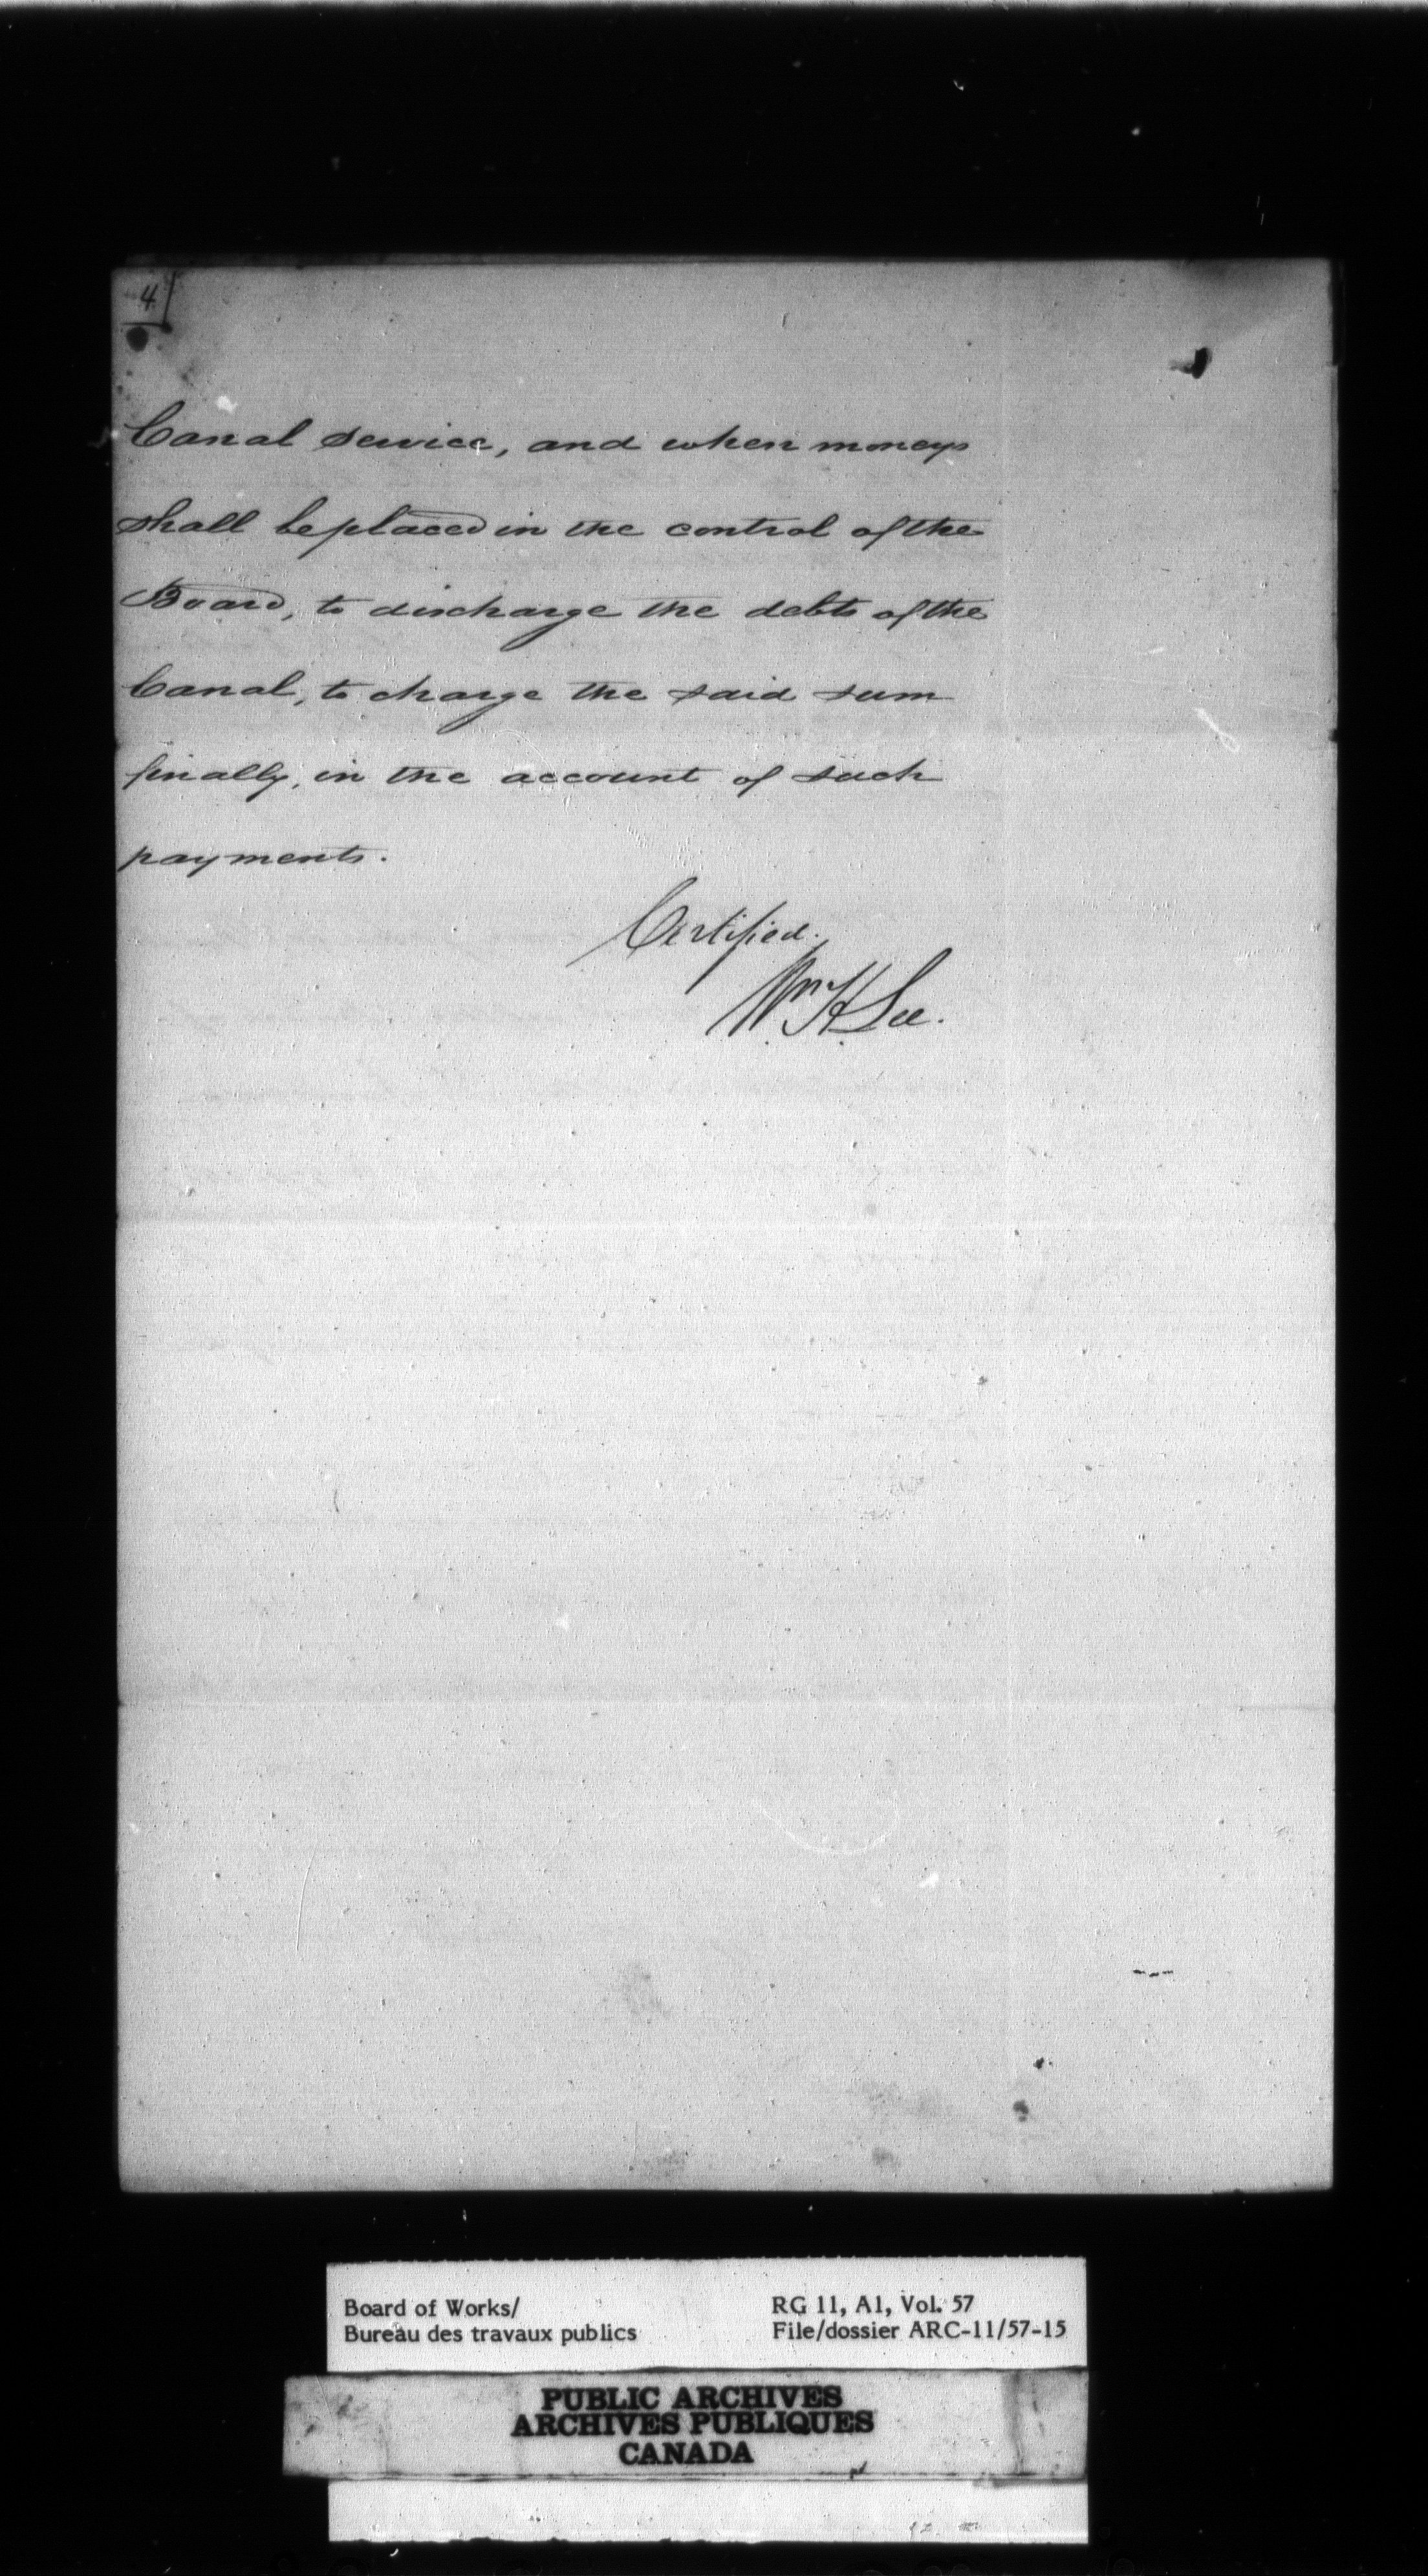 4
Canal service, and when moneys
shall be placed in the control of the
Board, to discharge the debts of the
Canal, to charge the said sum
finally, in the account of such
payments.
Certified.
Wm H Lee.
Board of Works/
Bureau des travaux publics
RG 11, A1, Vol. 57
File/dossier ARC-11/57-15
PUBLIC ARCHIVES
ARCHIVES PUBLIQUES
CANADA